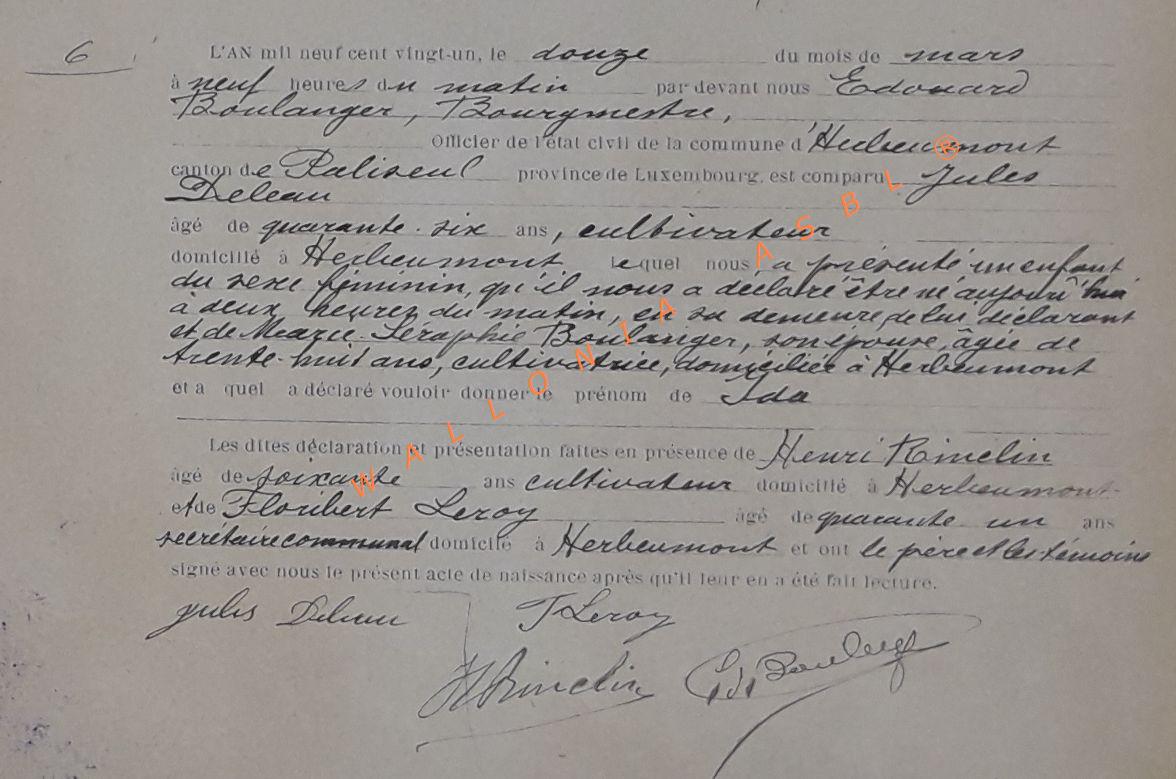 6
L'AN mil neuf cent vingt-un, le douze du mois de mars
à neuf heures du matin par devant nous Edouard
Boulanger, Bourgmestre,
Officier de l'état civil de la commune d'Herbeumont
canton de Paliseul province de Luxembourg, est comparu Jules
Deleau
âgé de quarante-six ans, cultivateur
domicilié à Herbeumont lequel nous a présenté un enfant
du sexe féminin, qu'il nous a déclaré être né aujourd'hui
à deux heures du matin, en sa demeure de lui déclarant
et de Marie Séraphie Boulanger, son épouse, âgée de
trente-huit ans, cultivatrice, domiciliée à Herbeumont
et a quel a déclaré vouloir donner le prénom de Ida
Les dites déclaration et présentation faites en présence de Henri Rinclin
âgé de soixante ans cultivateur domicilié à Herbeumont
et de Floribert Leroy âgé de quarante un ans
secrétaire communal domicilié à Herbeumont et ont le père et les témoins
signé avec nous le présent acte de naissance après qu'il leur en a été fait lecture.
Jules Deleau Leroy
H Rinclin Ed. Boulanger
WALLONIA ASBL ®